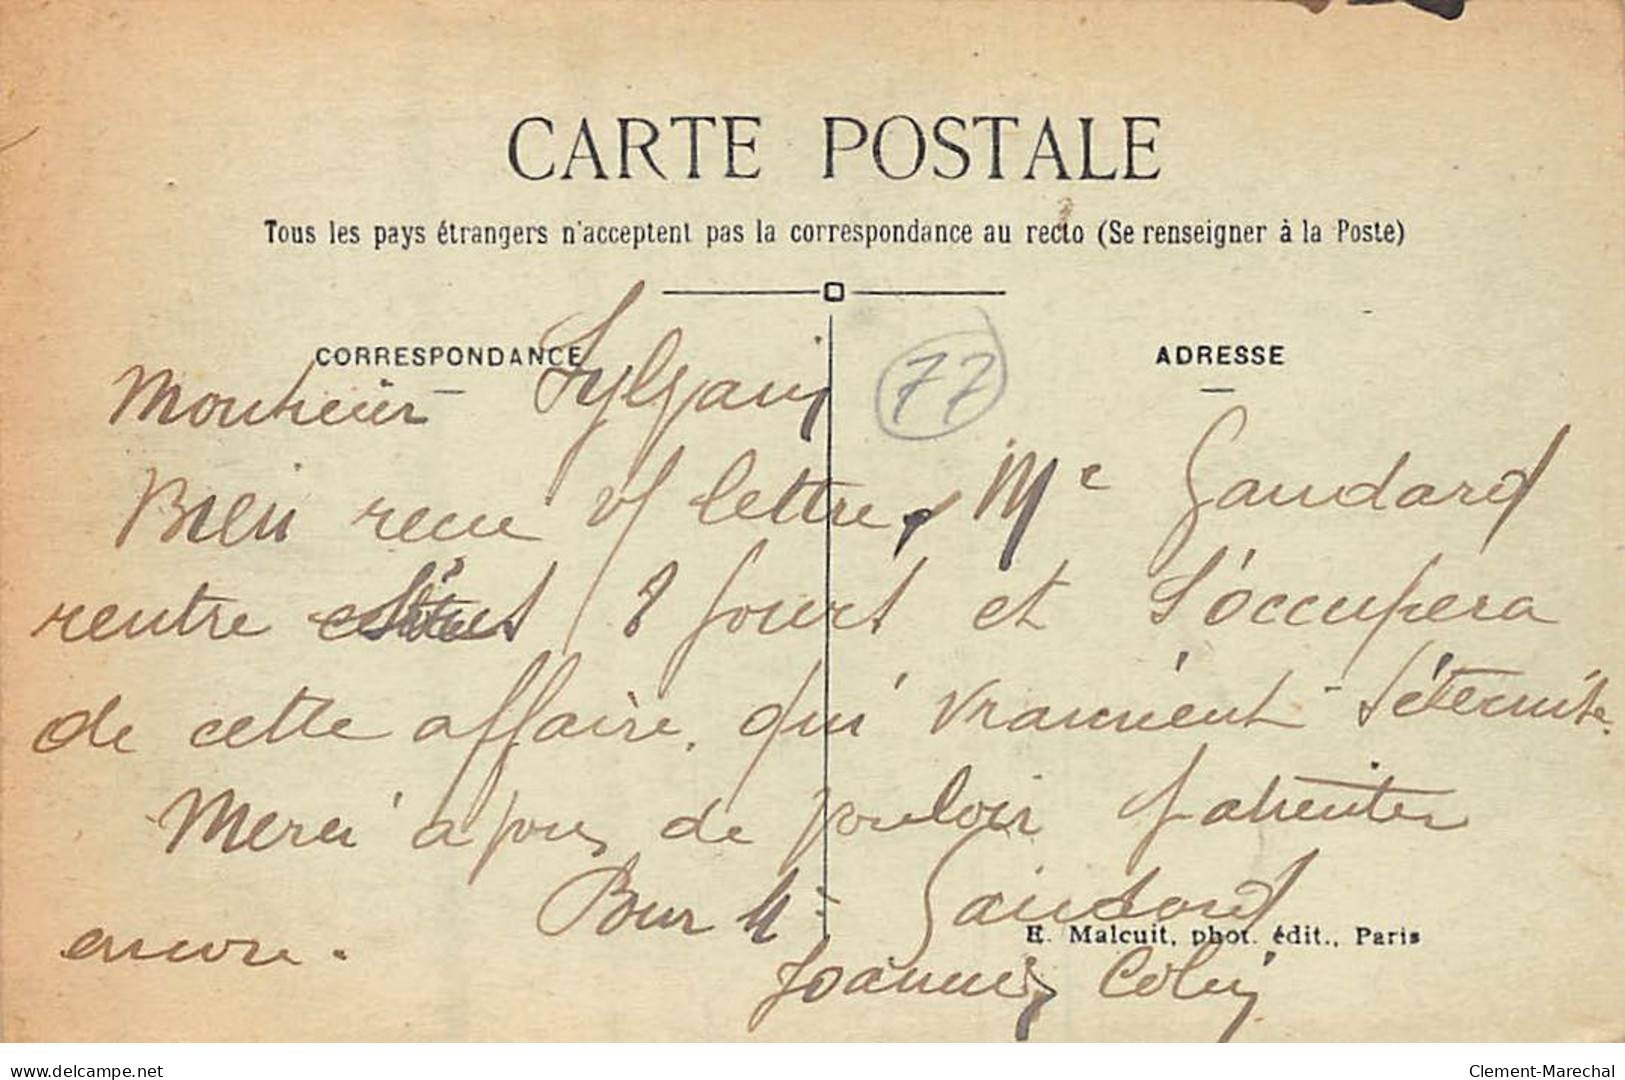 CARTE POSTALE
Tous les pays étrangers n'acceptent pas la correspondance au recto (Se renseigner à la Poste)
CORRESPONDANCE
ADRESSE
77
Monsieur
Bien reçu v/ lettre, Me Gaudard
rentre 8 jours et s'occupera
de cette affaire, qui vraiment s'éternise.
Merci de vouloir patienter
encore.
Pour Me Gaudard
E. Malcuit, phot. édit., Paris
Joannès Colin
delcampe.net
Clement-Marechal